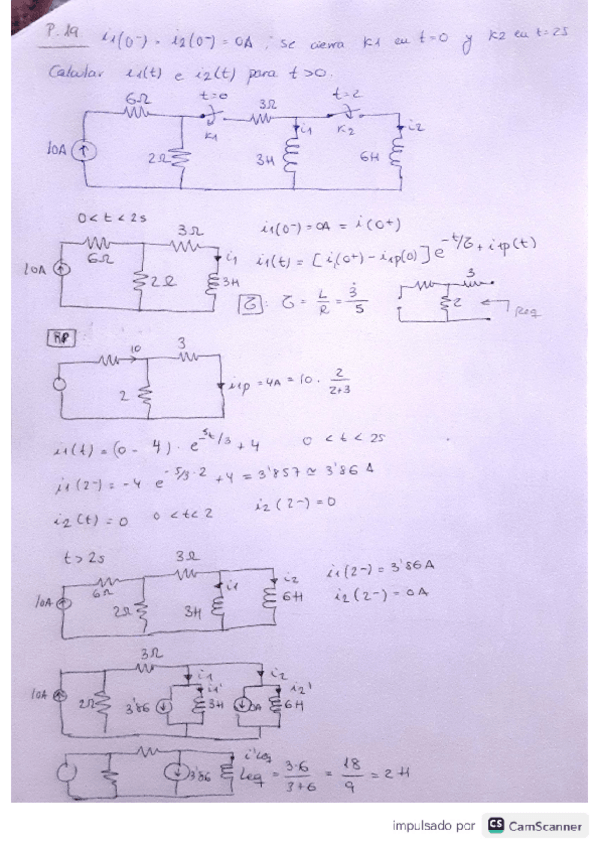 P.19 i1(0-) = i2(0-) = 0A ; se cierra K1 en t=0 y K2 en t=2s
Calcular i1(t) e i2(t) para t>0.
6Ω t=0 3Ω t=2
K1 i1 K2 i2
10A 2Ω 3H 6H
0<t<2s
i1(0-)=0A = i(0+)
3Ω
6Ω i1 i1(t) = [i(0+) - i1p(0)] e^-t/τ + i1p(t)
10A 2Ω 3H
τ : τ = L/R = 3/5 3 2 Req
RP
10 3
2 i1p = 4A = 10 · 2/(2+3)
i1(t) = (0 - 4) · e^-5t/3 + 4 0<t<2s
i1(2-) = -4 e^-5/3·2 + 4 = 3'857 ≃ 3'86 A
i2(t) = 0 0<t<2 i2(2-) = 0
t>2s 3Ω
6Ω i1 i2 i1(2-) = 3'86A
10A 2Ω 3H 6H i2(2-) = 0A
3Ω
i1 i2
10A 2Ω 3'86 i1' 3H 0A i2' 6H
i'Leq
3'86 Leq = 3·6/(3+6) = 18/9 = 2H
impulsado por CS CamScanner